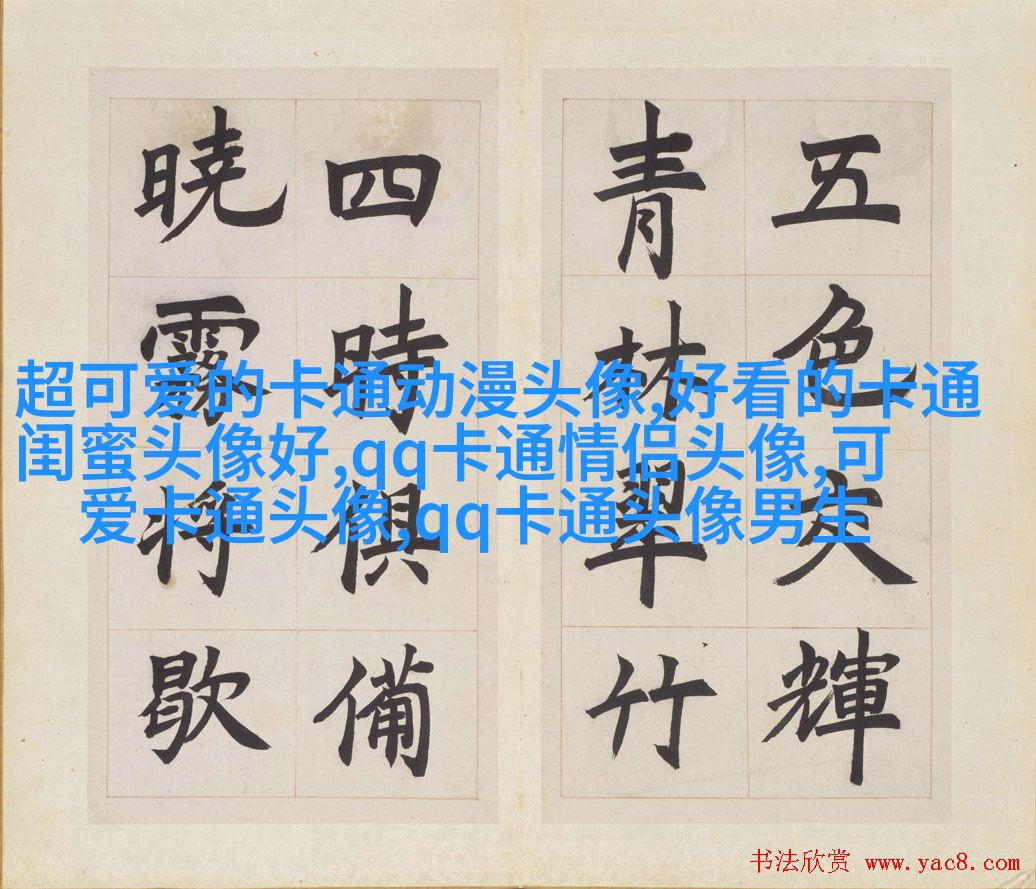 五色交輝
青林翠竹
四時俱備
暁霧将歇
超可爱的卡通动漫头像,好看的卡通
闺蜜头像好,qq卡通情侣头像,可
爱卡通头像,qq卡通头像男生
书法欣赏 www.yac8.com